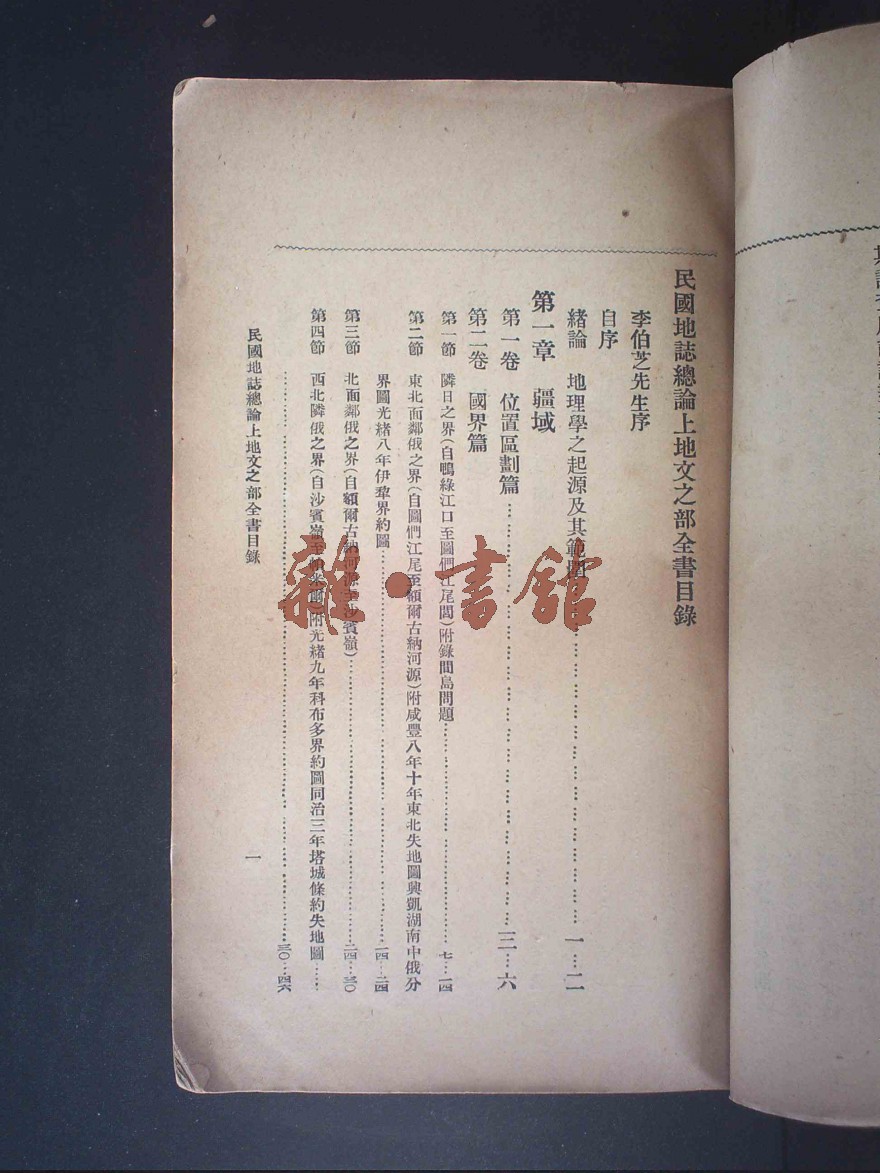 民國地誌總論上地文之部全書目錄
李伯芝先生序
自序
緒論　地理學之起源及其範圍……一…二
第一章　疆域
第一卷　位置區劃篇……三…六
第二卷　國界篇
第一節　隣日之界(自鴨綠江口至圖們江尾間)附錄間島問題……七…一四
第二節　東北面鄰俄之界(自圖們江尾至額爾古納河源)附咸豐八年十年東北失地圖興凱湖南中俄分
界圖光緒八年伊犂界約圖……一四…二四
第三節　北面鄰俄之界(自額爾古納河源至沙賓嶺)……二四…三〇
第四節　西北隣俄之界(自沙賓嶺至帕米爾)附光緒九年科布多界約圖同治三年塔城條約失地圖……
……三〇…四六
民國地誌總論上地文之部全書目錄
一
雜·書館